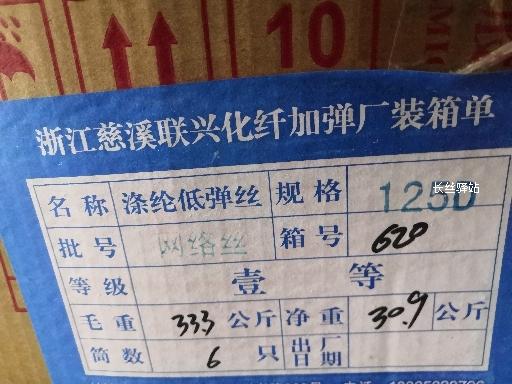 10
浙江慈溪联兴化纤加弹厂装箱单
名称 涤纶低弹丝 规格 125D
长丝驿站
批号 网络丝 箱号 620
等级 壹等
毛重 33.3 公斤 净重 30.9 公斤
筒数 6 只 出厂日期